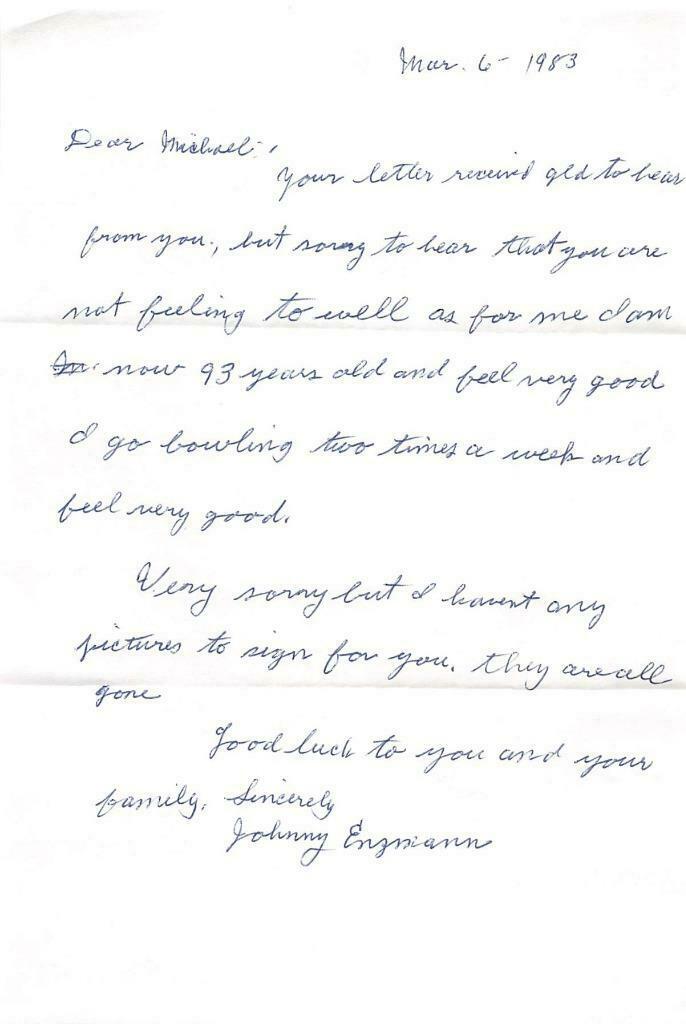 Mar. 6 - 1983
Dear Michael:,
Your letter received gld to hear
from you., but sorry to hear that you are
not feeling to well as for me I am
now 93 years old and feel very good
I go bowling two times a week and
feel very good.
Very sorry but I havent any
pictures to sign for you. they are all
gone
Good luck to you and your
family. Sincerely
Johnny Enzmann